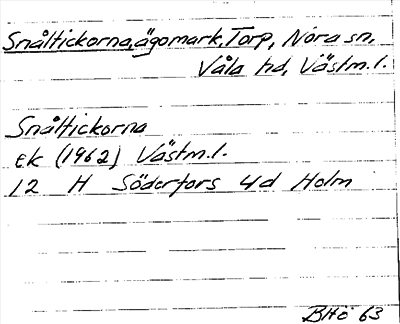 Snåltickorna, ägomark, Torp, Nora sn,
Våla hd, Västm.l.
Snåltickorna
ek (1962) Västm.l.
12 H Söderfors 4d Holm
BHö 63